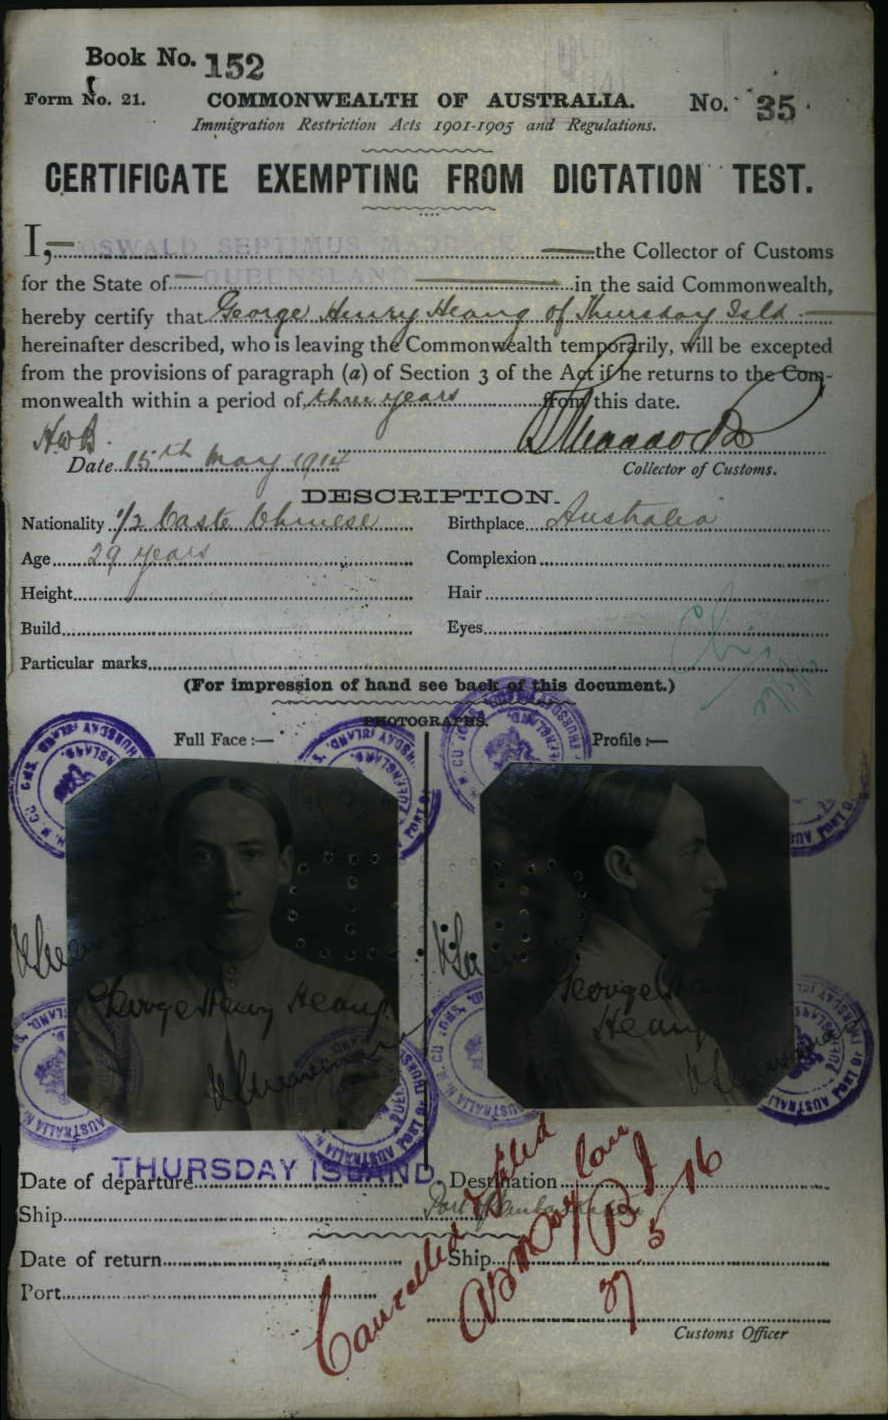 Book No. 152
Form No. 21. COMMONWEALTH OF AUSTRALIA. No. 35
Immigration Restriction Acts 1901-1905 and Regulations.
CERTIFICATE EXEMPTING FROM DICTATION TEST.
I, OSWALD SEPTIMUS MADDOCK the Collector of Customs
for the State of QUEENSLAND in the said Commonwealth,
hereby certify that George Henry Heang of Thursday Isld.
hereinafter described, who is leaving the Commonwealth temporarily, will be excepted
from the provisions of paragraph (a) of Section 3 of the Act if he returns to the Com-
monwealth within a period of three years from this date.
Date 15th May 1914
Collector of Customs.
DESCRIPTION.
Nationality 1/2 Caste Chinese Birthplace Australia
Age 29 years Complexion
Height Hair
Build Eyes
Particular marks
(For impression of hand see back of this document.)
PHOTOGRAPHS.
Full Face :— Profile :—
George Henry Heang
George
Heang
THURSDAY ISLAND.
Date of departure Destination
Ship Port of embarkation
Date of return Ship
Port
Cancelled
Customs Officer